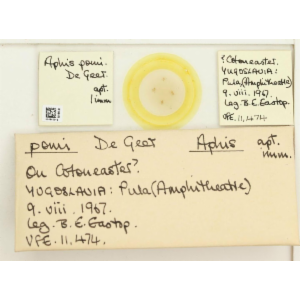 Aphis pomi.
De Geer.
apt.
1 imm.
? Cotoneaster.
YUGOSLAVIA:
Pula (Amphitheatre)
9. viii. 1967.
leg. B.E. Eastop.
VFE. 11,474
pomi De Geer Aphis apt.
imm.
On Cotoneaster?
YUGOSLAVIA: Pula (Amphitheatre)
9. viii. 1967.
leg. B.E. Eastop.
VFE. 11.474.